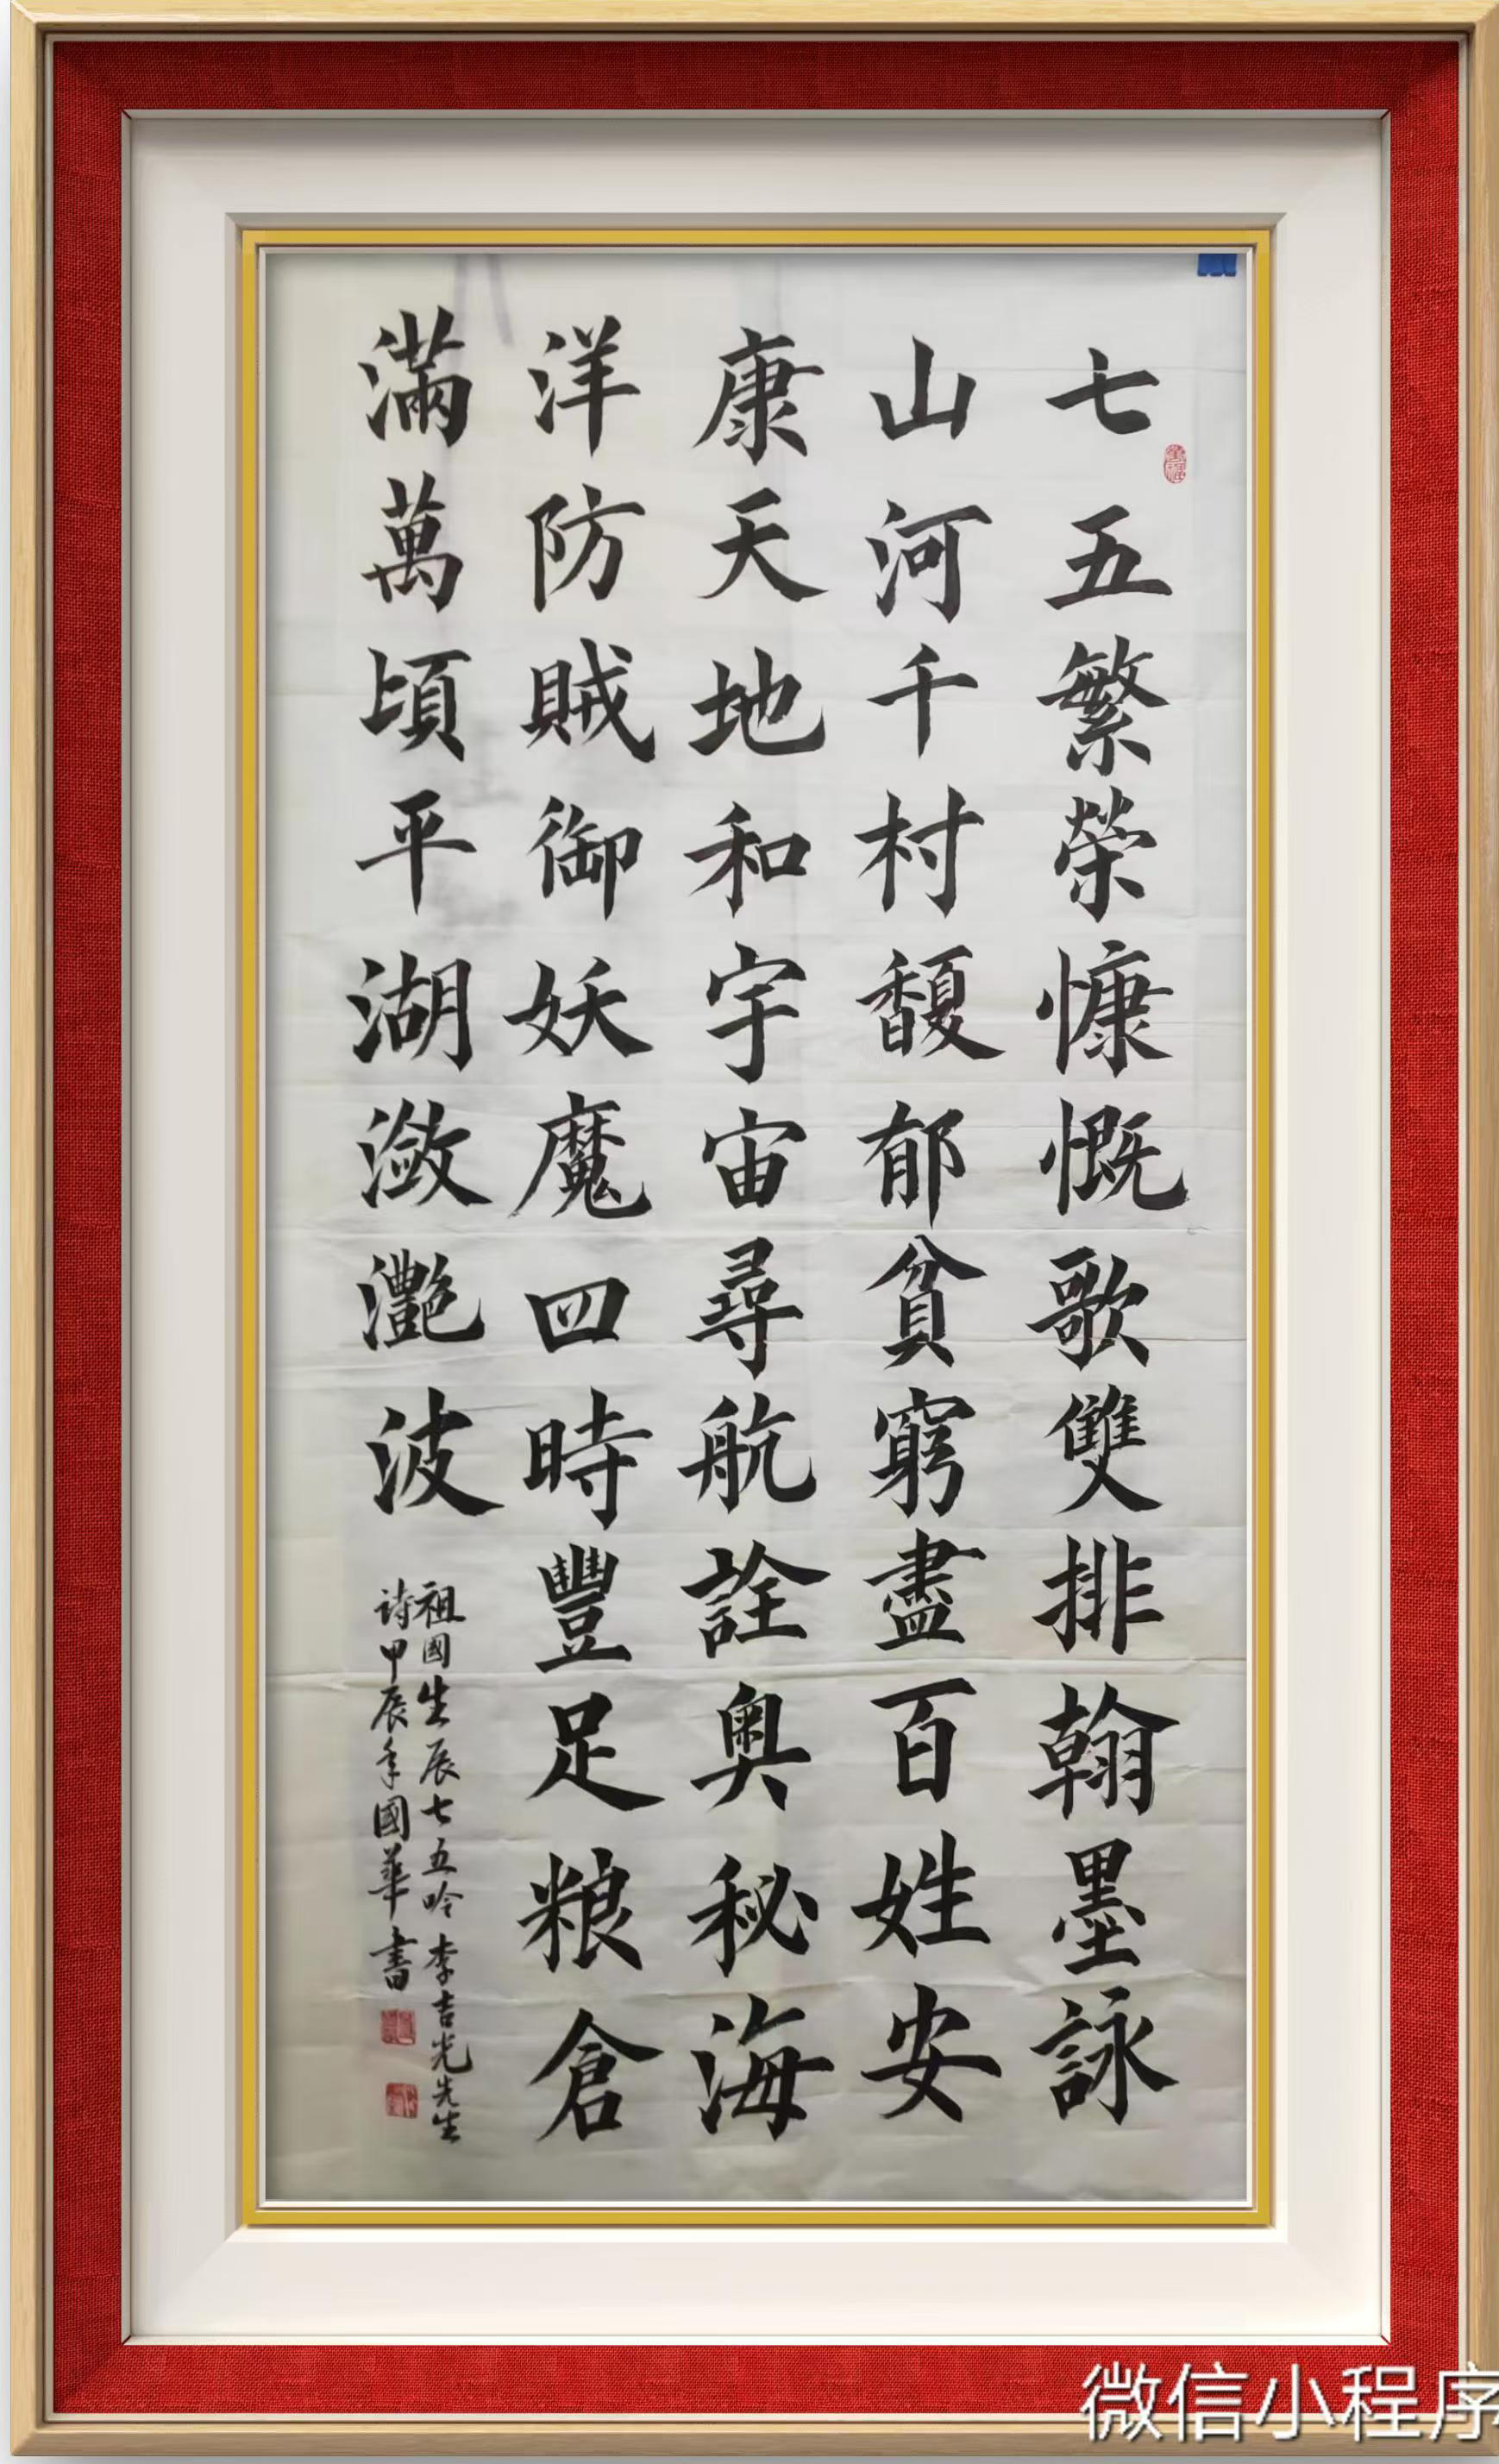 七五繁榮慷慨歌雙排翰墨詠
山河千村馥郁貧窮盡百姓安
康天地和宇宙尋航詮奥秘海
洋防賊御妖魔四時豐足粮倉
滿萬頃平湖瀲灧波
祖國生辰七五吟李吉光先生
詩甲辰年國華書
微信小程序